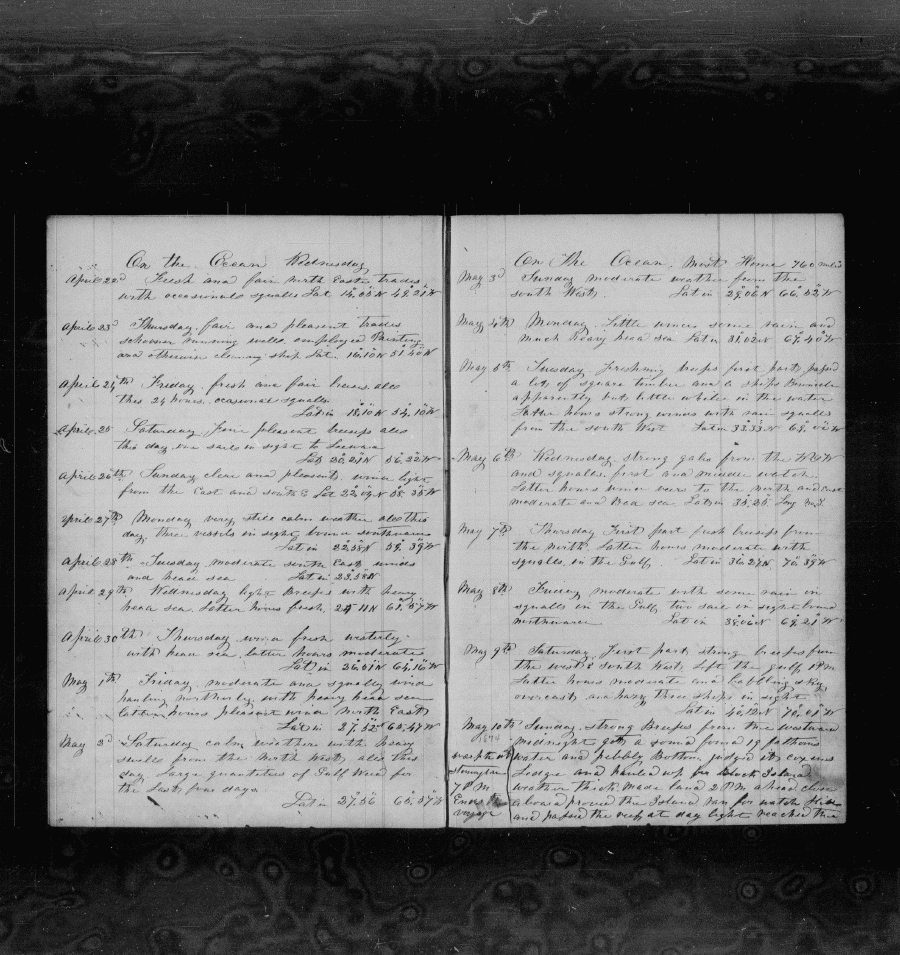 On the Ocean Wednesday
April 22d Fresh and fair north East trades
with occasional squalls Lat 14,05N 49,21W
April 23d Thursday fair and pleasent trades
schooner running well employed Painting
and otherwise cleaning ship Lat. 16,10N 51,40W
April 24th Friday fresh and fair breeses also
this 24 hours. ocasional squalls
Lat in 18,10N 54,10W
April 25 Saturday fine pleasent breeses also
this day one sail in sight to Leeward
Lat 20,21N 56,22W
April 26th Sunday clear and pleasent winds light
from the East and south E Lat 22,09N 58,35W
April 27th Monday very still calm weather also this
day three vessels in sight bound southward
Lat in 22,58N 59,39W
April 28th Tuesday moderate south East winds
and head sea Lat in 23,58N
April 29th Wednesday light Breeses with heavy
head sea. Latter hours fresh, 24 11N 61,57W
April 30th Thursday wind fresh westerly
with head sea latter hours moderate
Lat in 26,01N 64,16W
May 1th Friday moderate and squally wind
hauling northerly with heavy head sea
latter hours pleasent wind North East
Lat in 27,52N 65,47W
May 2d Saturday calm weather with heavy
swells from the North West, also this
day Large quantities of Gulf Weed for
the Last few days
Lat in 27,56 65,57W
On The Ocean, most Home 760 miles
May 3d Sunday moderate weather from the
south West. Lat in 29,06N 66,52W
May 4th Monday Little winds some rain and
much heavy head sea Lat in 31,02N 67,40W
May 5th Tuesday freshning breeses first part, passed
a lot of square timber and a ships
apparently but little while in the water
Latter hours strong winds with rain squalls
from the south West Lat in 33,33N 69,00W
May 6th Wednesday strong gales from the WSW
and squalls first and middle watch
Latter hours wind veer to the north and East
moderate and Bad sea Lat in 35,25
May 7th Thursday First part fresh breeses from
the north. Latter hours moderate with
squalls, in the Gulf. Lat in 36,27N 70,39W
May 8th Friday moderate with some rain in
squalls in the Gulf two sail in sight bound
northward Lat in 38,06N 69,21W
May 9th Saturday First part strong breeses from
the west & south West, Left the gulf 1 PM
Latter hours moderate and
overcast and hazy three ships in sight
Lat in 40,12N 70,09W
May 10th Sunday strong Breeses from the westward
1874 midnight got a sound found 19 fathoms
water and pebbly Bottom judged it coxens
Ledge and hauled up for Block Island
weather thick made land 2 PM ahead close
aboard proved the Island ran for watch Hill
and passed the reef at day light reached
7 PM
Ends the
voyage